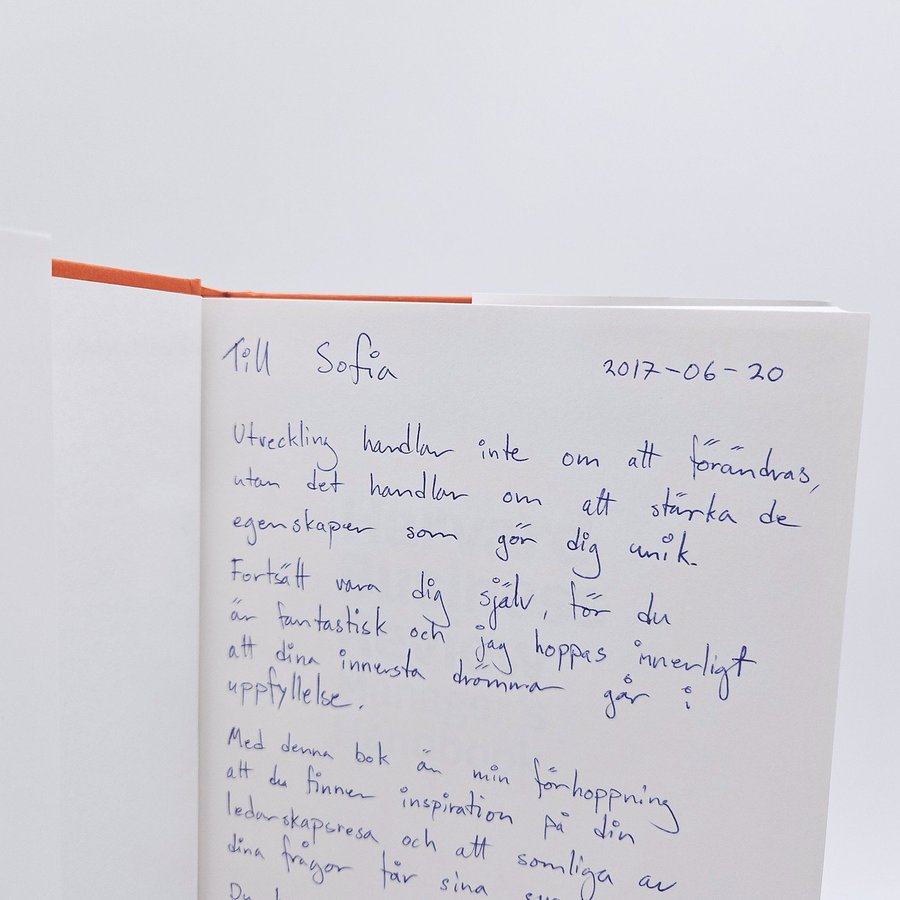 Till Sofia 2017-06-20
Utveckling handlar inte om att förändras,
utan det handlar om att stärka de
egenskaper som gör dig unik.
Fortsätt vara dig själv, för du
är fantastisk och jag hoppas innerligt
att dina innersta drömmar går i
uppfyllelse.
Med denna bok är min förhoppning
att du finner inspiration på din
ledarskapsresa och att somliga av
dina frågor får sina
Du